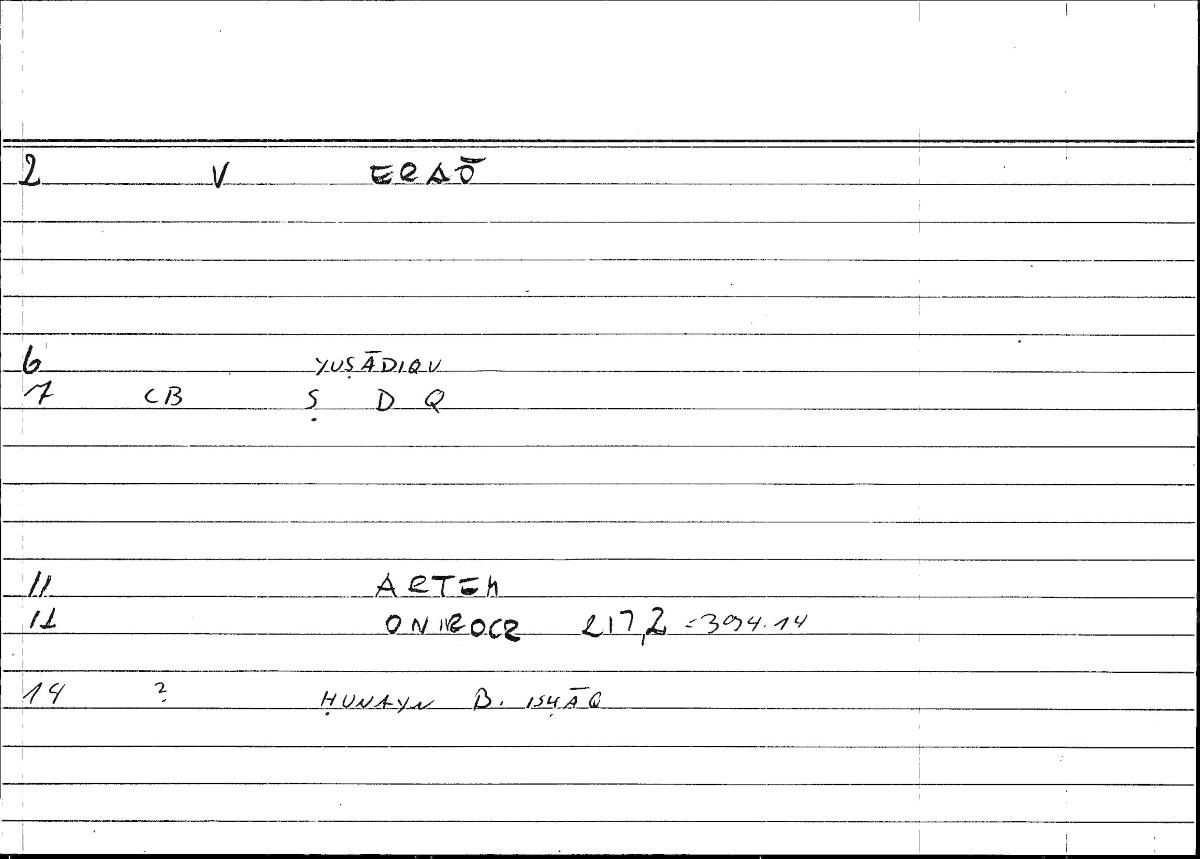 2 V ERAŌ
6 YUṢĀDIQU
7 CB Ṣ D Q
11 ARTEM
12 ONIROCR 217,2 =394.14
14 ? ḤUNAYN B. ISḤĀQ